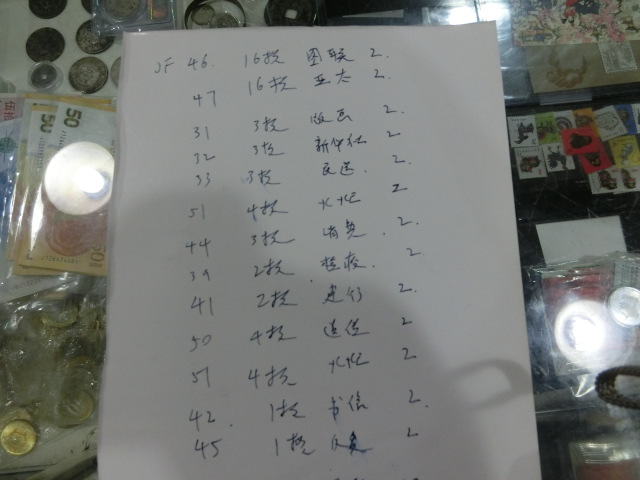 JF 46. 16枚 围联 2.
47 16枚 亚太 2.
31 3枚 版画 2.
32 3枚 新华社 2
33 3枚 民运. 2.
51 4枚 火炬 2
44 3枚 消免. 2.
39 2枚 检疫. 2
41 2枚 建行 2.
50 4枚 远征 2
51 4枚 火炬 2
42. 1枚 书信 2.
45 1枚 2
50
50